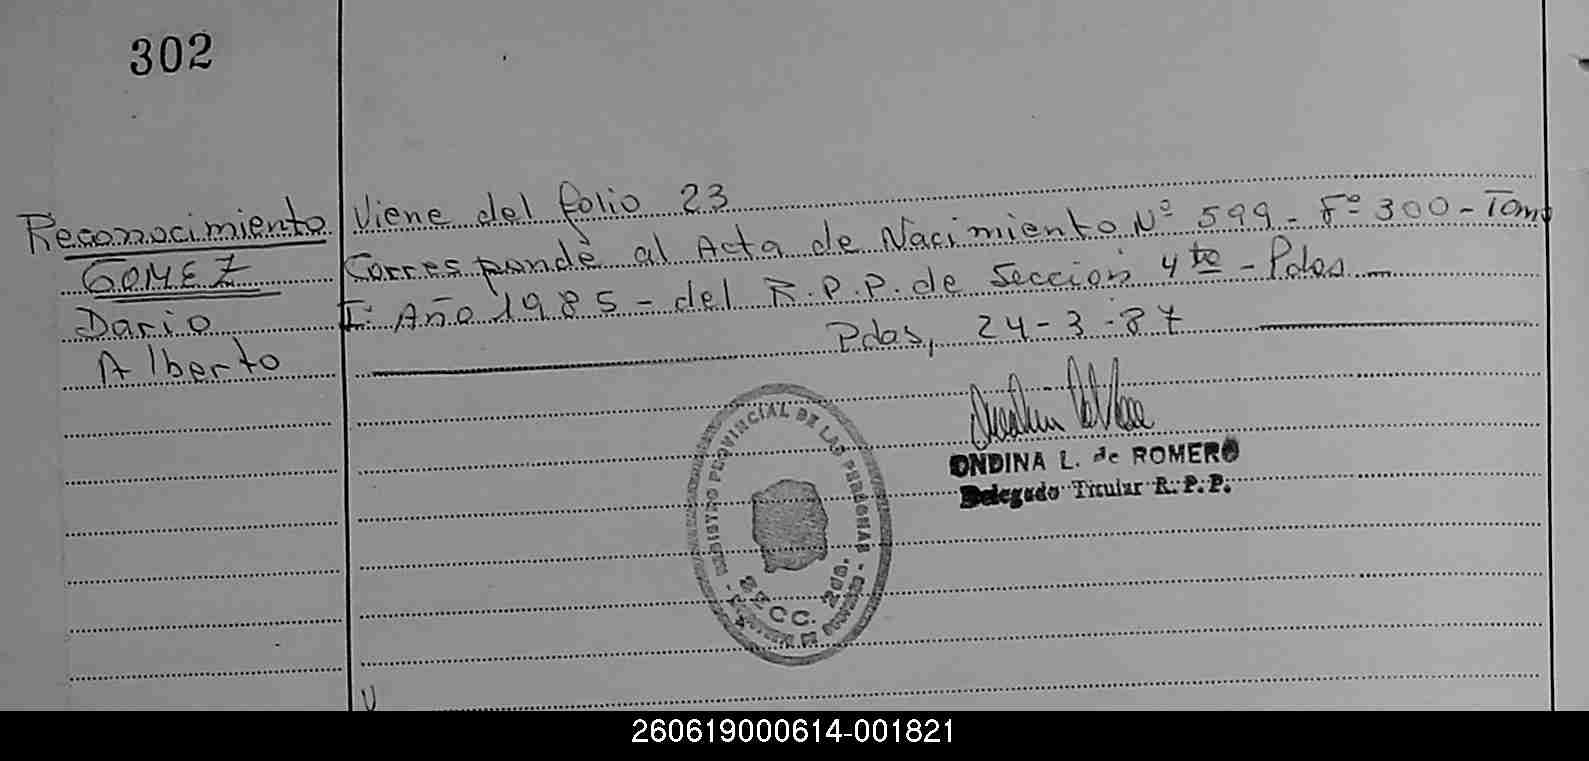 302
Reconocimiento
GOMEZ
Dario
Alberto
Viene del folio 23
Corresponde al Acta de Nacimiento Nº 599 - Fº 300 - Tomo
I: Año 1985 - del R.P.P. de Sección 4ta - Pdas
Pdas, 24-3-87
ONDINA L. de ROMERO
Delegado Titular R.P.P.
REGISTRO PROVINCIAL DE LAS PERSONAS
SECC. 2da.
260619000614-001821